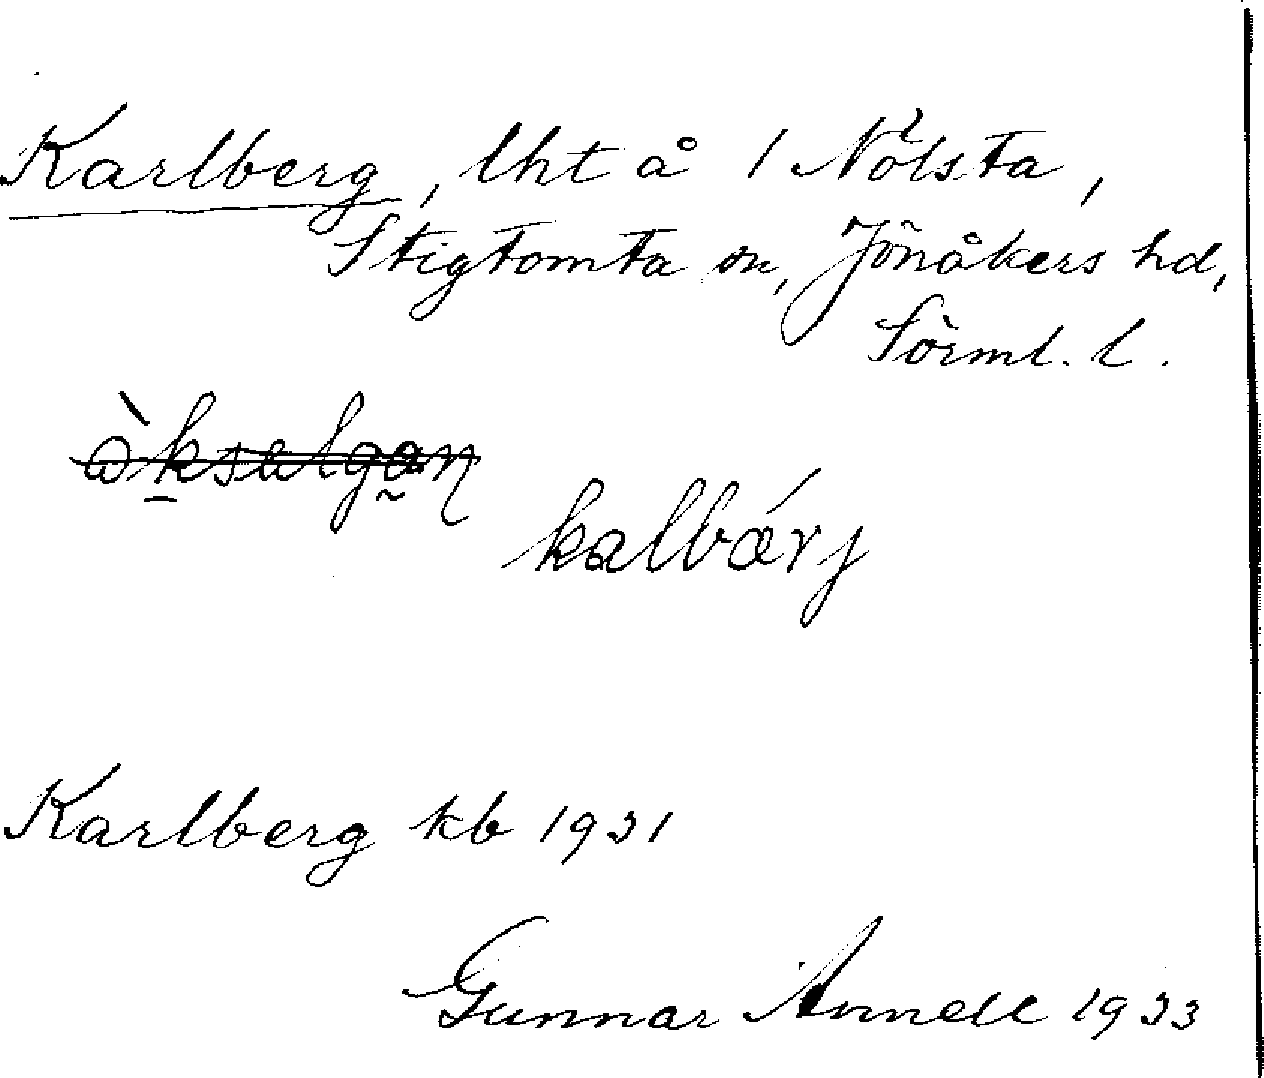 Karlberg, lht å 1 Nölsta,
Stigtomta sn, Jönåkers hd,
Sörml. l.
kalbǽrj
Karlberg kb 1931
Gunnar Annell 1933